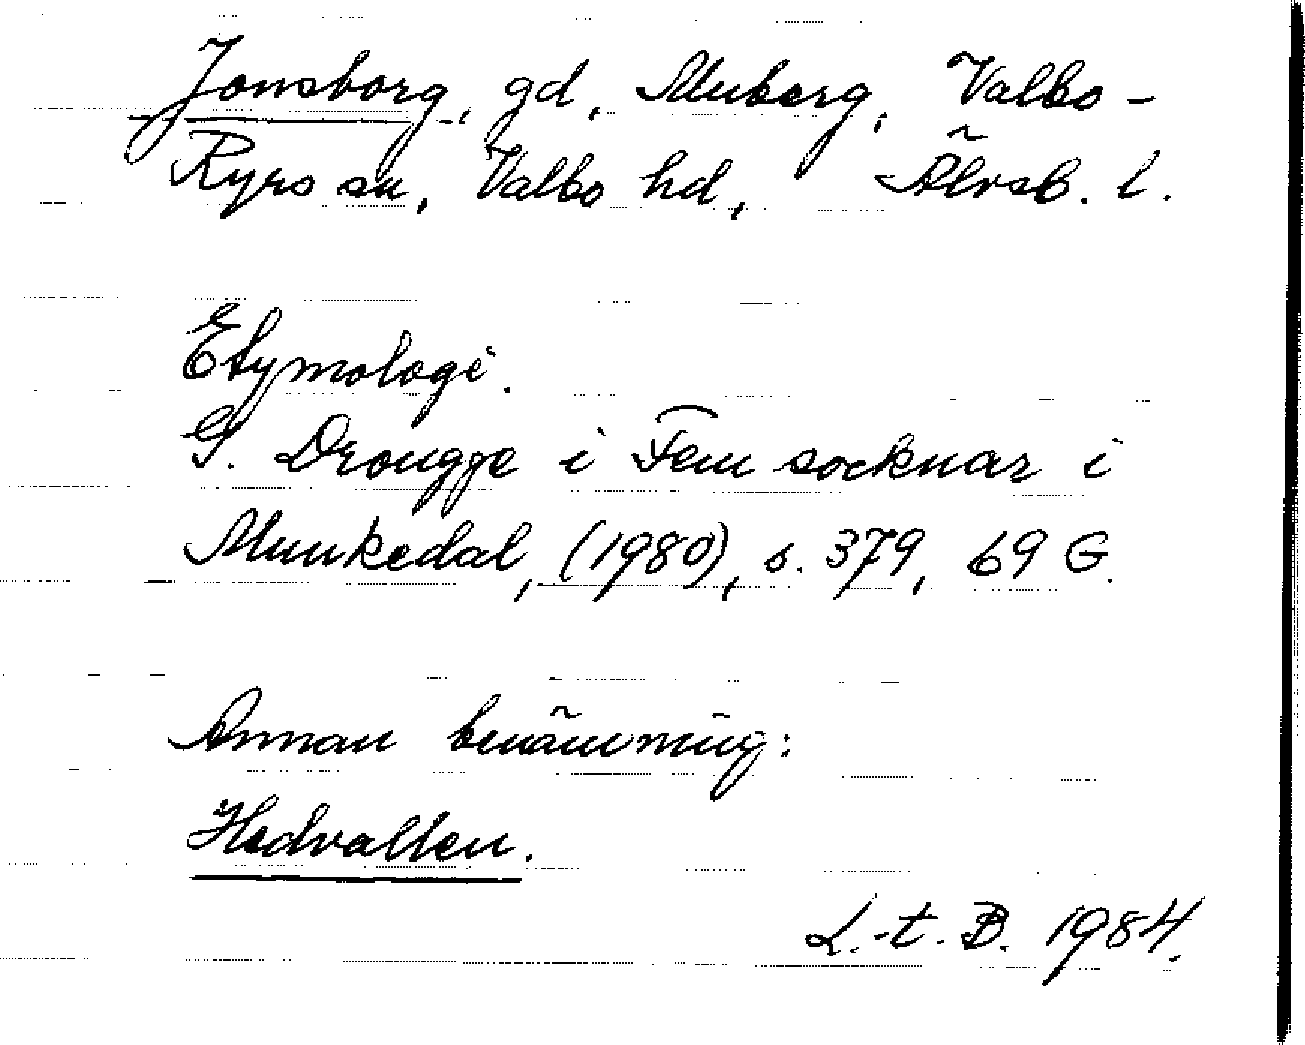 Jonsborg, gd, Muberg, Valbo-
Ryrs sn, Valbo hd, Älvsb. l.
Etymologi.
G. Drougge i Fem socknar i
Munkedal, (1980), s. 379, 69 G.
Annan benämning:
Hedvallen.
L.-t. B. 1984.